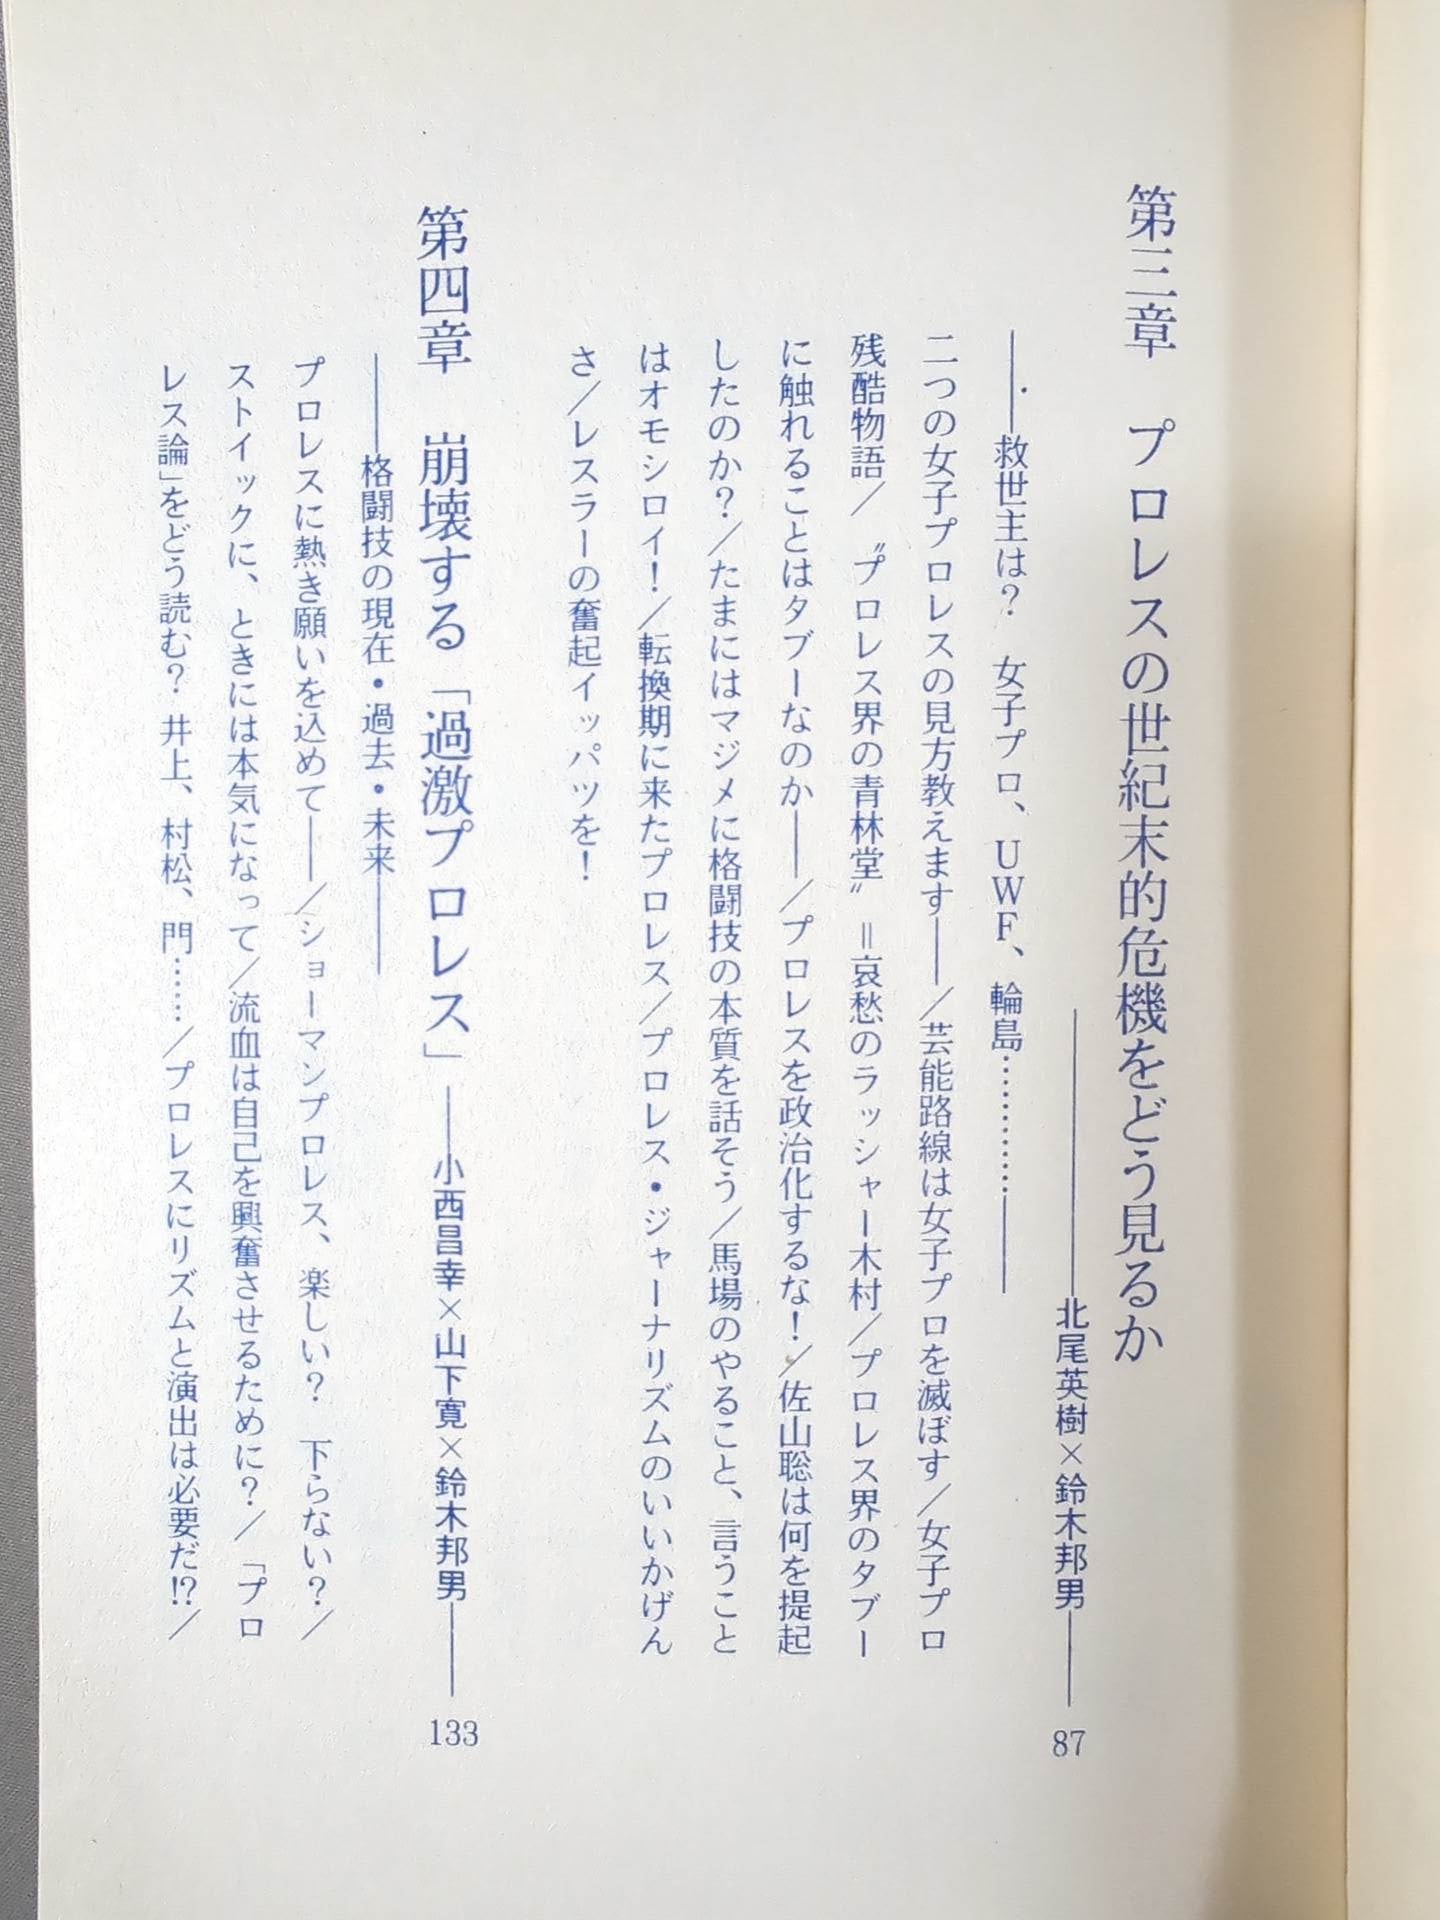 第三章　プロレスの世紀末的危機をどう見るか
――北尾英樹×鈴木邦男――87
――救世主は？　女子プロ、UWF、輪島…………――
二つの女子プロレスの見方教えます――／芸能路線は女子プロを滅ぼす／女子プロ
残酷物語／〝プロレス界の青林堂〟＝哀愁のラッシャー木村／プロレス界のタブー
に触れることはタブーなのか――／プロレスを政治化するな！／佐山聡は何を提起
したのか？／たまにはマジメに格闘技の本質を話そう／馬場のやること、言うこと
はオモシロイ！／転換期に来たプロレス／プロレス・ジャーナリズムのいいかげん
さ／レスラーの奮起イッパツを！
第四章　崩壊する「過激プロレス」――小西昌幸×山下寛×鈴木邦男――133
――格闘技の現在・過去・未来――
プロレスに熱き願いを込めて――／ショーマンプロレス、楽しい？　下らない？／
ストイックに、ときには本気になって／流血は自己を興奮させるために？／「プロ
レス論」をどう読む？　井上、村松、門……／プロレスにリズムと演出は必要だ!?／